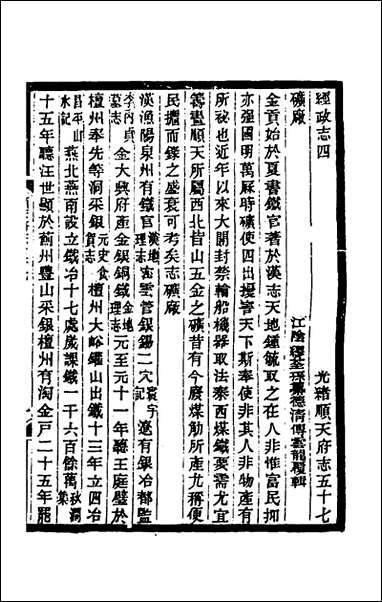 光緒順天府志五十七
經政志四
江陰繆荃孫纂德清傅雲龍覆輯
礦廠
金貢始於夏書鐵官著於漢志天地鍾毓取之在人非惟富民抑
亦强國明萬厤時礦使四出擾害天下斯奉使非其人非物產有
所祕也近年以來大開封禁輪船機器取法泰西煤鐵要需尤宜
籌畫順天所屬西北皆山五金之礦昔有今廢煤窑所產尤稱便
民擴而錄之盛衰可考矣志礦廠
漢漁陽泉州有鐵官漢地理志密雲管銀錫二穴寰宇記遼有銀冶都監
李內貞墓志金大興府產金銀銅鐵金地理志元至元十一年聽王庭璧於
檀州奉先等洞采銀元史食貨志檀州大峪錐山出鐵十三年立四冶
昌平山水記燕北燕南設立鐵冶十七處歲課鐵一千六百餘萬秋澗集
十五年聽汪世顯於薊州豐山采銀檀州有淘金戶二十五年罷